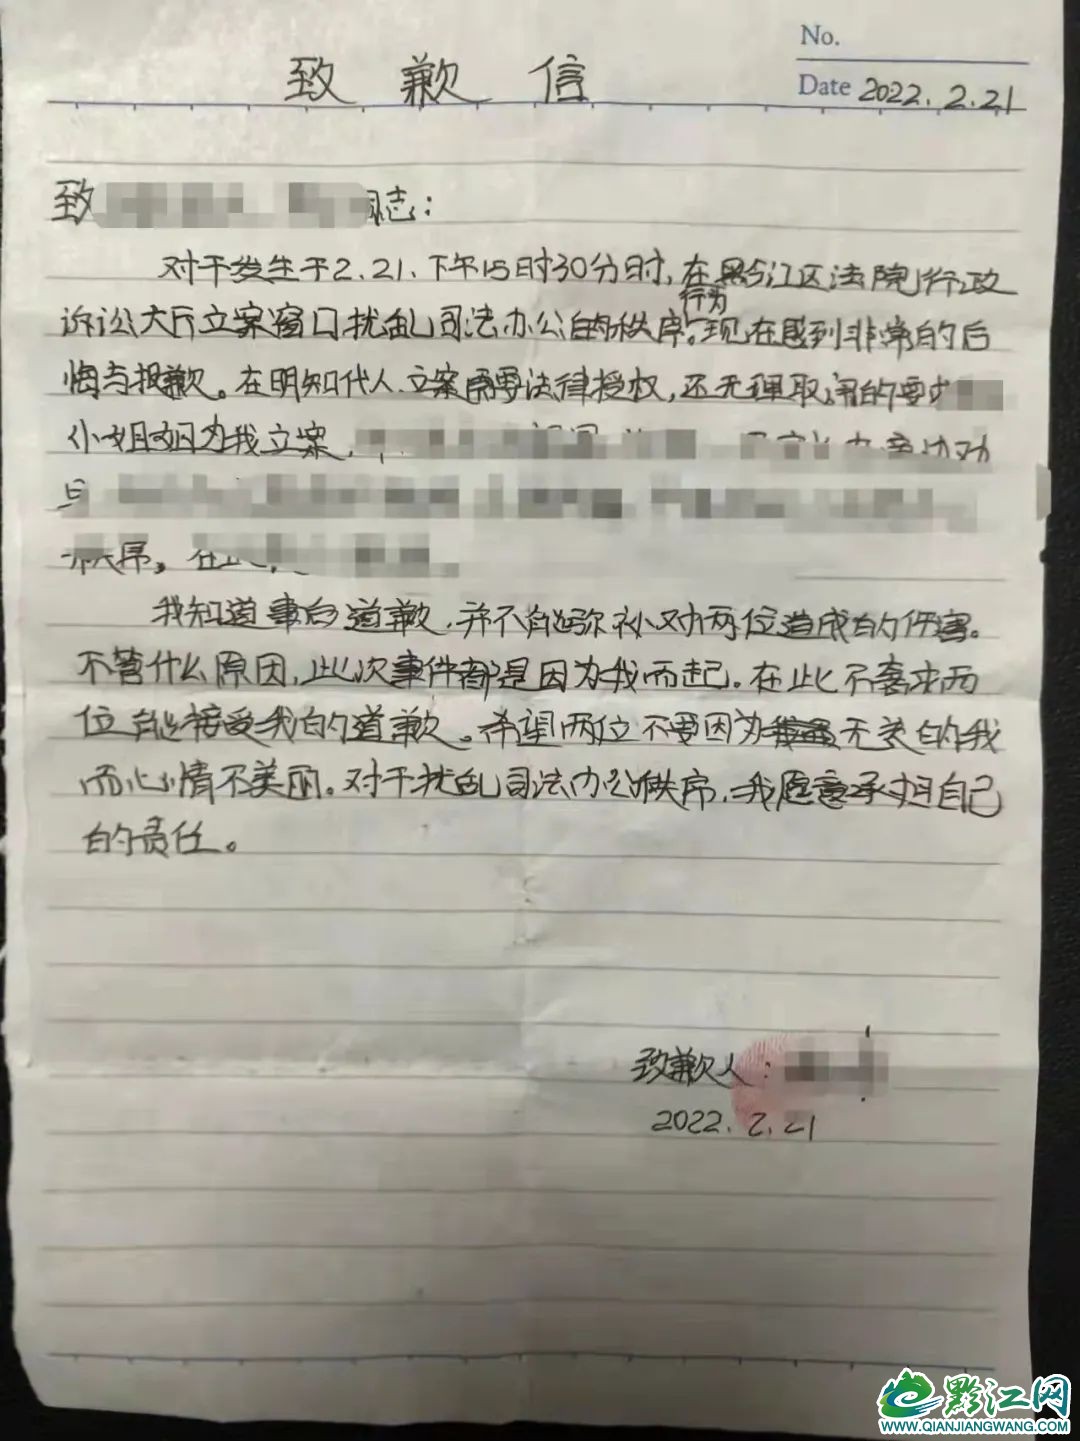 No.
致歉信
Date 2022.2.21
致 同志：
对于发生于2.21.下午15时30分时，在黔江区法院行政
行为
诉讼大厅立案窗口扰乱司法办公的秩序。现在感到非常的后
悔与报歉。在明知代人立案需要法律授权，还无理取闹的要求
小姐姐为我立案，
秩序，在
我知道事后道歉，并不能弥补对两位造成的伤害。
不管什么原因，此次事件都是因为我而起。在此不奢求两
位能接受我的道歉。希望两位不要因为无关的我
而心情不美丽。对于扰乱司法办公秩序，我愿意承担自己
的责任。
致歉人：
2022.2.21
黔江网
WWW.QIANJIANGWANG.COM